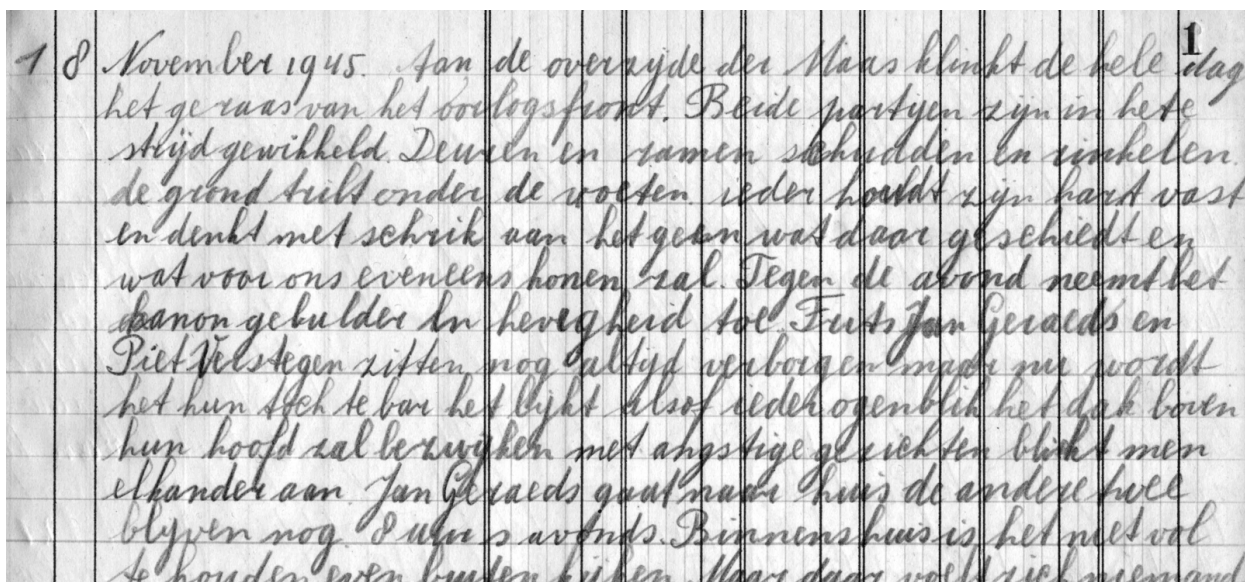 1
1 8 November 1945. Aan de overzyde der Maas klinkt de hele dag
het geraas van het oorlogsfront. Beide partyen zijn in hete
strijd gewikkeld. Deuren en ramen schudden en rinkelen.
de grond trilt onder de voeten. ieder houdt zyn hart vast
en denkt met schrik aan het geen wat daar geschiedt en
wat voor ons eveneens komen zal. Tegen de avond neemt het
kanon gebulder in hevigheid toe. Frits Jan Geraeds en
Piet Verstegen zitten nog altyd verborgen maar nu wordt
het hun toch te bar het lykt alsof ieder ogenblik het dak boven
hun hoofd zal bezwyken met angstige gezichten blikt men
elkander aan. Jan Geraeds gaat naar huis de andere twee
blyven nog. 8 uur s avonds. Binnenshuis is het niet vol
te houden even buiten kyken. Maar daar voelt zich niemand